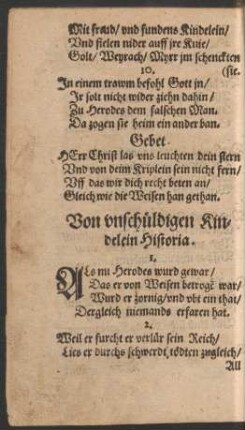 Mit fraud/ vnd fundens Kindelein/
Vnd fielen nider auff jre Knie/
Golt/ Weyrach/ Myrr jm schenckten
10. (sie.
In einem trawm befohl Gott jn/
Ir solt nicht wider ziehn dahin/
Zu Herodes dem falschen Man.
Da zogen sie heim ein ander ban.
Gebet
HErr Christ las vns leuchten dein stern
Vnd von deim Kriplein sein nicht fern/
Uff das wir dich recht beten an/
Gleich wie die Weisen han gethan.
Von vnschüldigen Kin-
delein Historia.
1.
ALs nu Herodes wurd gewar/
Das er von Weisen betrogē war/
Wurd er zornig/ vnd vbt ein that/
Dergleich niemands erfaren hat.
2.
Weil er furcht er verlür sein Reich/
Lies er durchs schwerdt tödten zugleich/
All